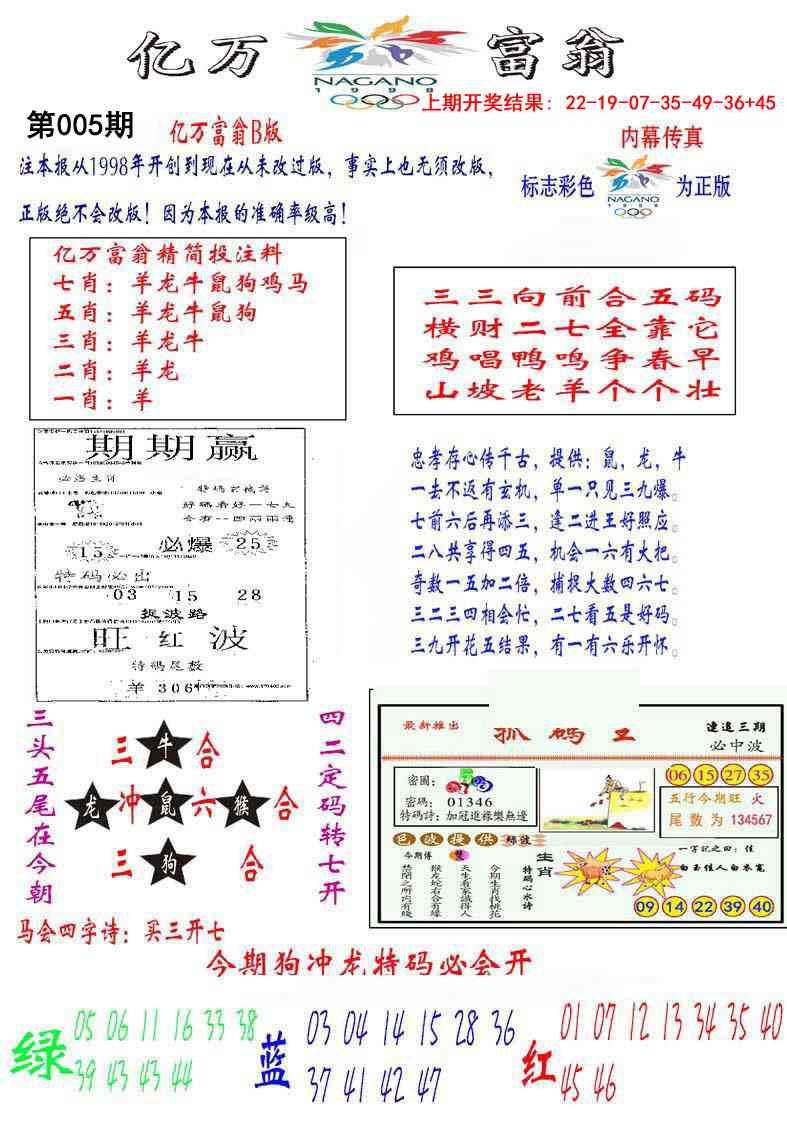 亿万
富翁
NAGANO
1998
上期开奖结果: 22-19-07-35-49-36+45
第005期
亿万富翁B版
内幕传真
注本报从1998年开创到现在从未改过版，事实上也无须改版，
正版绝不会改版！因为本报的准确率级高！
标志彩色
NAGANO
1998
为正版
亿万富翁精简投注料
七肖：羊龙牛鼠狗鸡马
五肖：羊龙牛鼠狗
三肖：羊龙牛
二肖：羊龙
一肖：羊
三三向前合五码
横财二七全靠它
鸡唱鸭鸣争春早
山坡老羊个个壮
期期赢
必选生肖
好码看好一七九
合有一四丽丽逢
15
必爆
25
特码必出
03 15 28
捉波路
旺红波
特码尾数
羊306
忠孝存心传千古，提供：鼠，龙，牛
一去不返有玄机，单一只见三九爆。
七前六后再添三，逢二进王好照应。
二八共享得四五，机会一六有大把。
奇数一五加二倍，捕捉大数四六七。
三二三四相会忙，二七看五是好码。
三九开花五结果，有一有六乐开怀。
三头五尾在今朝
三 牛 合
龙 冲 鼠 六 猴 合
三 狗 合
四二定码转七开
马会四字诗：买三开七
最新推出
抓码王
连追三期
必中波
密圖：
密碼：01346
特码詩：加冠進祿樂無邊
06 15 27 35
五行今期旺 火
尾数为 134567
色波提供 绿波
今期傳
禁閉之所内有綫
猴龙蛇右合有缘
天生看家識得人
今期生肖找桃花
特码心水诗
生肖
一字记之曰：佳
白玉佳人白衣宽
09 14 22 39 40
今期狗冲龙特码必会开
绿
05 06 11 16 33 38
39 43 43 44
蓝
03 04 14 15 28 36
37 41 42 47
红
01 07 12 13 34 35 40
45 46